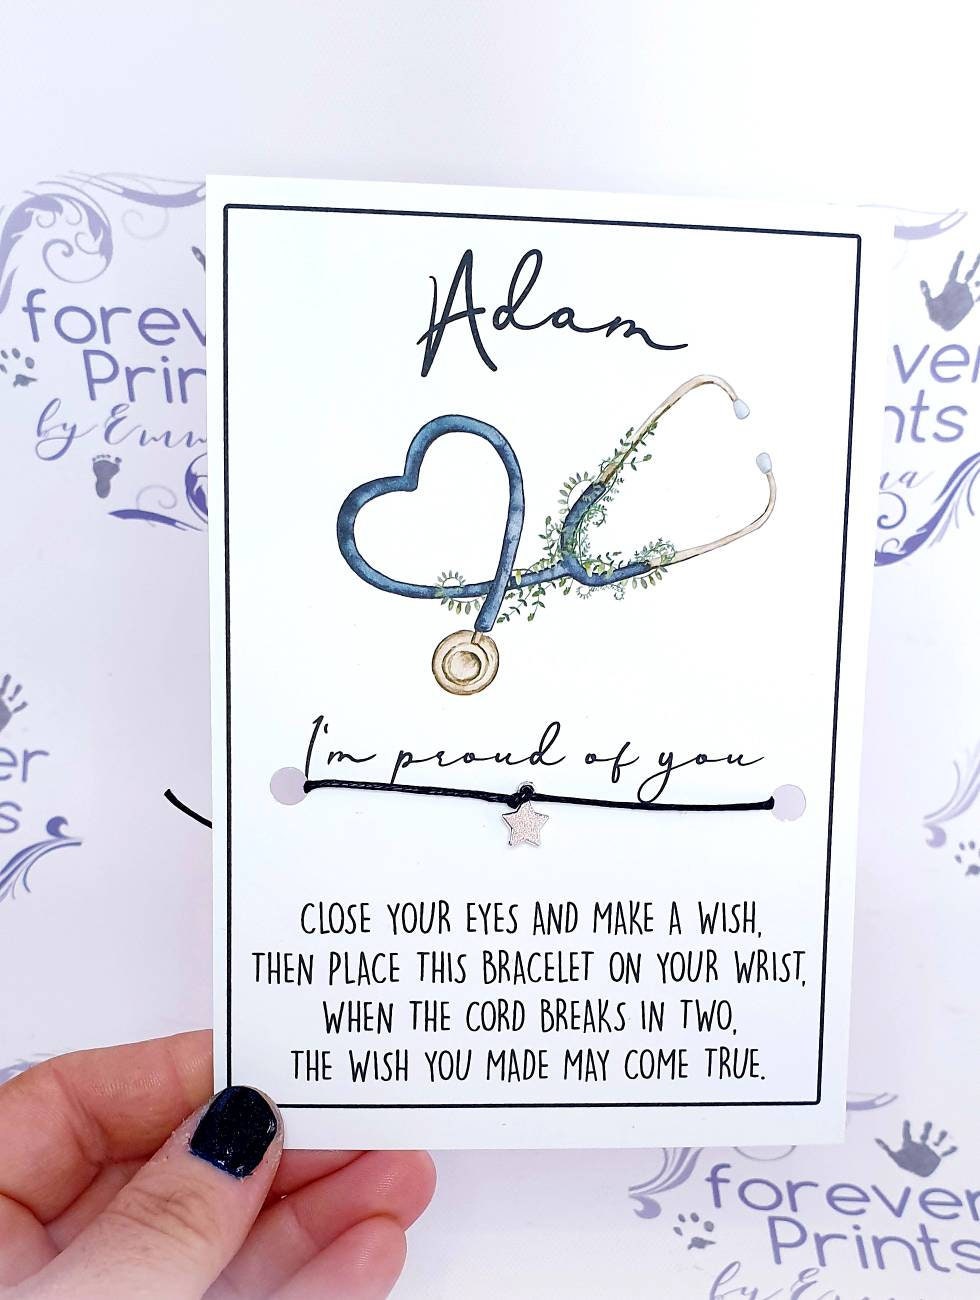 Adam
I'm proud of you
CLOSE YOUR EYES AND MAKE A WISH,
THEN PLACE THIS BRACELET ON YOUR WRIST,
WHEN THE CORD BREAKS IN TWO,
THE WISH YOU MADE MAY COME TRUE.
forever
Prints
by